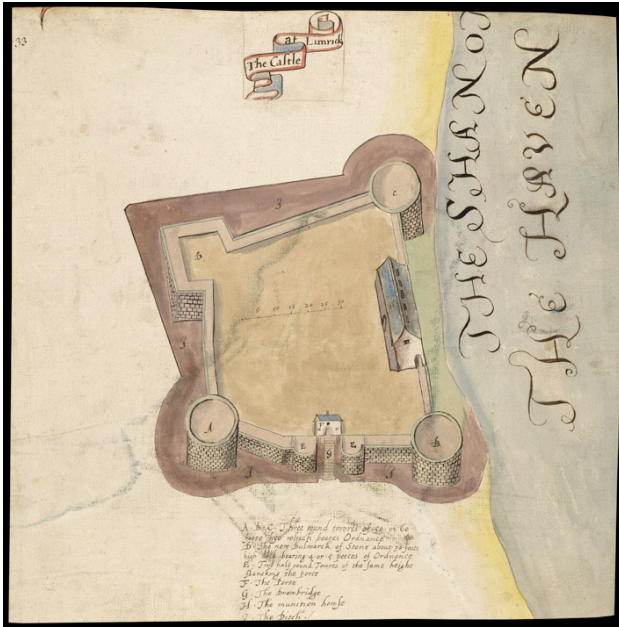 33
at Limrick
The Castle
THE SHANON
THE HAVEN
3
c
b
5 10 15 20 25 30
A
E
F
E
g
h
A. B. C. Three round towres of 50 or 60
foote hye which beares Ordnance
D. The new bulwarck of Stone about
high bearing 4 or 5 peeces of Ordnance
E. Two half round Towres of the same height
flancking the porte
F. The Porte
G. The Drawbridge
H. The munition house
I. The Ditch